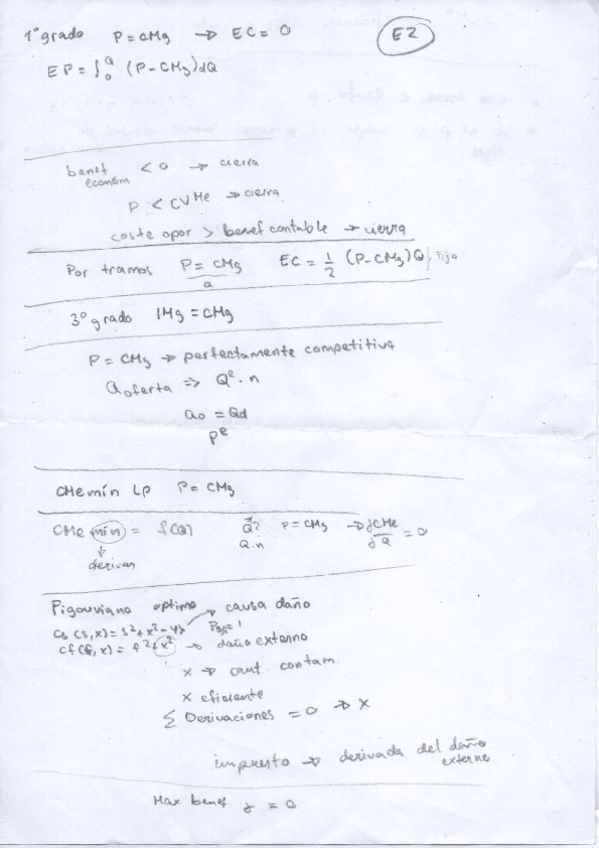 1º grado P = CMg → EC = 0 E2
EP = ∫₀^Q (P - CMg) dQ
benef económ < 0 → cierra
P < CVMe → cierra
coste opor > benef contable → cierra
Por tramos P = CMg EC = 1/2 (P - CMg) Q } Fija
Q
3º grado IMg = CMg
P = CMg → perfectamente competitiva
Qoferta => Qᵉ · n
Qo = Qd
Pᵉ
CMemín LP P = CMg
CMe mín = f(Q) Q? P = CMg → ∂CMe/∂Q = 0
↓ Q.n
derivar
Pigouviano optimo → causa daño
Cs (s,x) = s² + x² - 4x
Cf (f,x) = f² + x² → daño externo
x → cant contam.
x eficiente
Σ Derivaciones = 0 → x
impuesto → derivada del daño externo
Max benef ∂ = 0